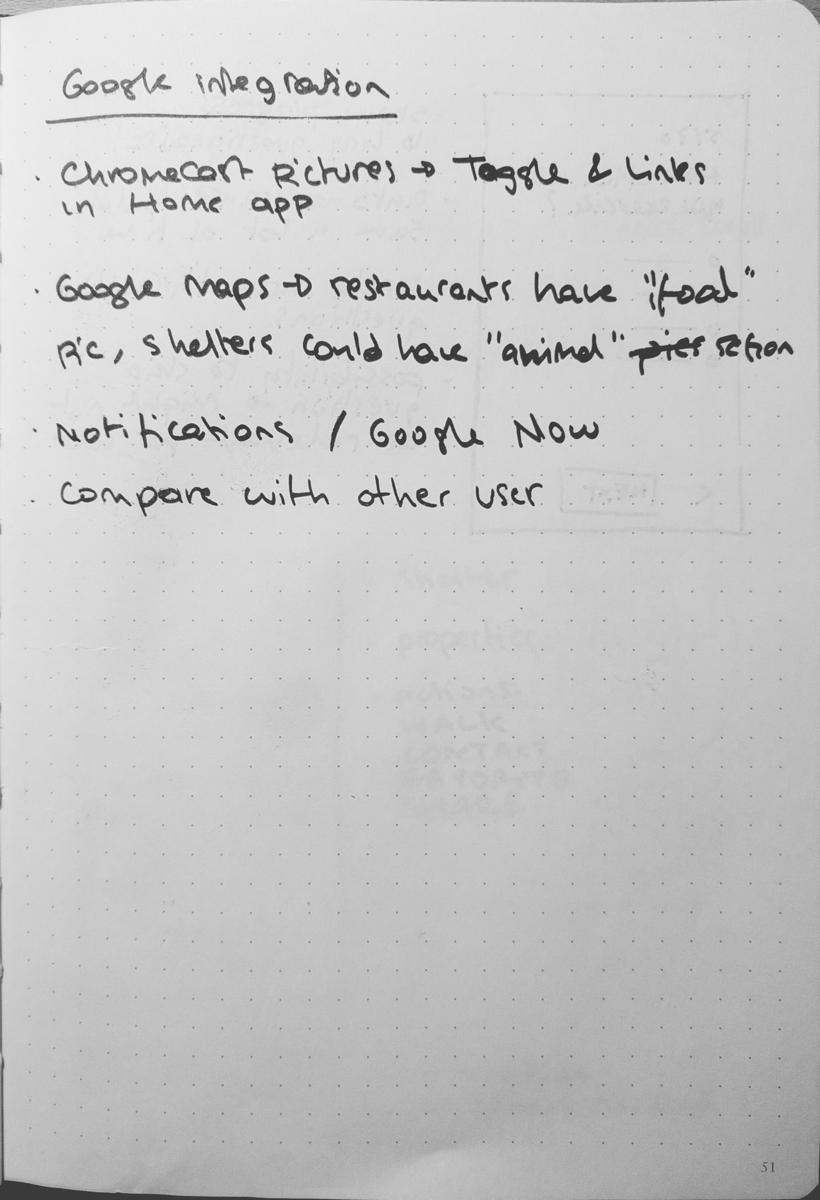 Google integration
· Chromecast pictures → Toggle & Links
in Home app
· Google Maps → restaurants have "food"
pic, shelters could have "animal" pics section
· Notifications / Google Now
· Compare with other user
51